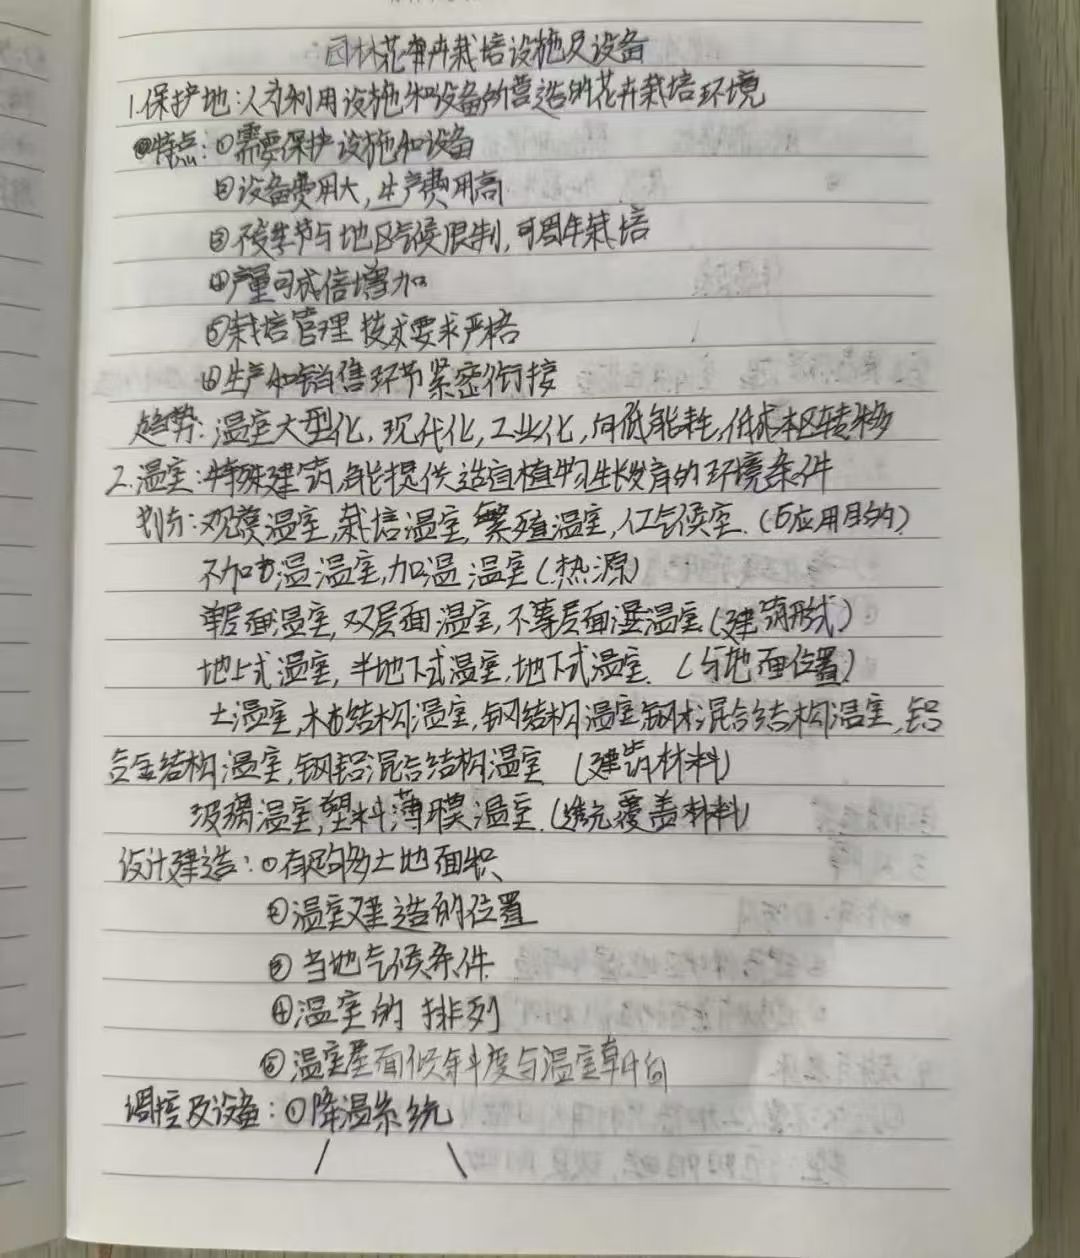 园林花卉栽培设施及设备
1.保护地:人为利用设施和设备的营造的花卉栽培环境
特点:①需要保护设施和设备
②设备费用大,生产费用高
③不受季节与地区气候限制,可周年栽培
④产量可成倍增加
⑤栽培管理技术要求严格
⑥生产和销售环节紧密衔接
趋势:温室大型化,现代化,工业化,向低能耗,低成本区转移
2.温室:特殊建筑,能提供适宜植物生长发育的环境条件
划分:观赏温室,栽培温室,繁殖温室,人工气候室.(与应用目的)
不加温温室,加温温室(热源)
单层面温室,双层面温室,不等层面温室(建筑形式)
地上式温室,半地下式温室,地下式温室.(与地面位置)
土温室,木结构温室,钢结构温室,钢木混合结构温室,铝
合金结构温室,钢铝混合结构温室 (建筑材料)
玻璃温室,塑料薄膜温室.(覆盖材料)
设计建造:①有足够多土地面积
②温室建造的位置
③当地气候条件
④温室的排列
⑤温室屋面倾斜度与温室朝向
调控及设备:①降温系统